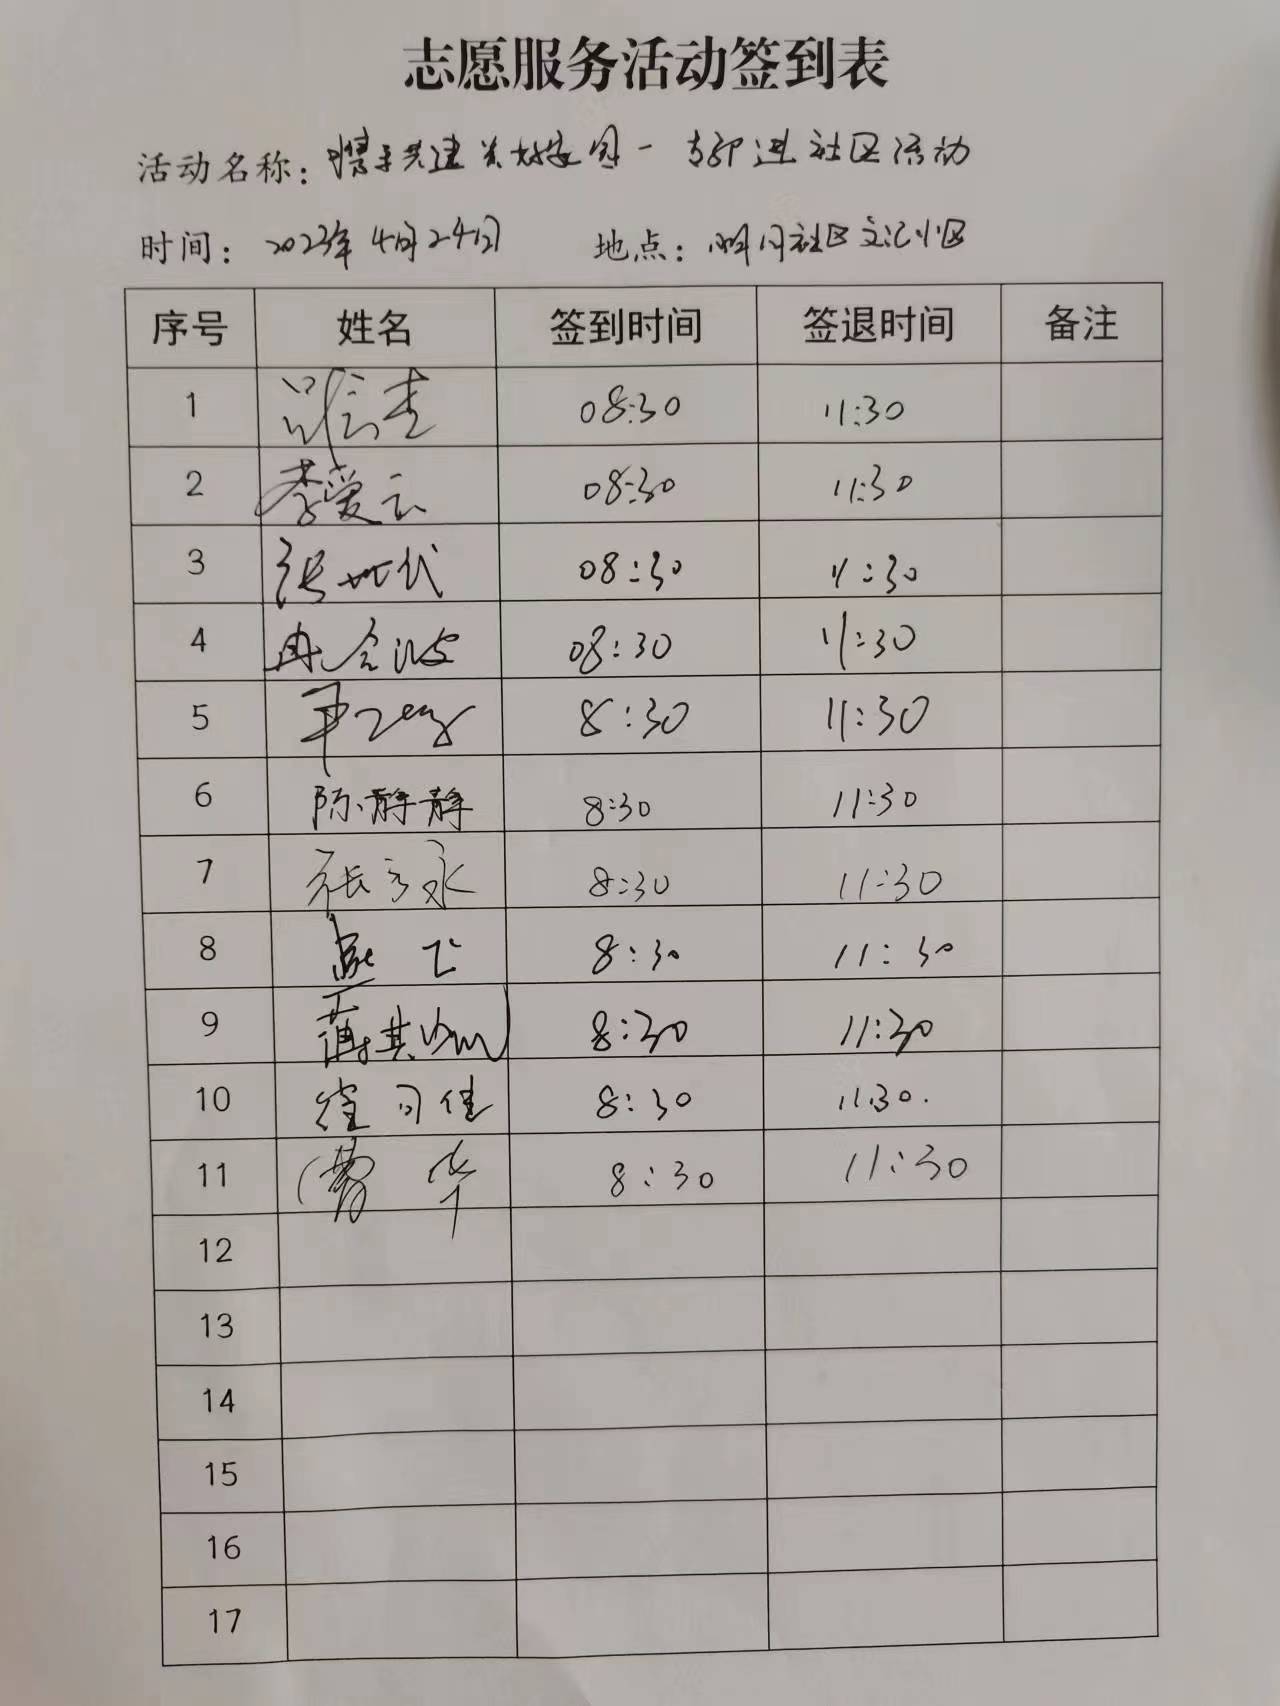 志愿服务活动签到表
活动名称：携手共建美好家园一支部进社区活动
时间：2023年4月24日 地点：明月社区文汇小区
序号 姓名 签到时间 签退时间 备注
1 08:30 11:30
2 李爱云 08:30 11:30
3 张世代 08:30 11:30
4 冉会波 08:30 11:30
5 8:30 11:30
6 陈静静 8:30 11:30
7 张永 8:30 11:30
8 8:30 11:30
9 蒋其 8:30 11:30
10 佳 8:30 11:30.
11 曹华 8:30 11:30
12
13
14
15
16
17